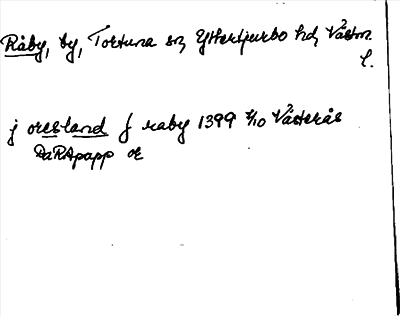 Råby, by, Tortuna sn, Yttertjurbo hd, Västm.
l.
j oresland j raby 1399 7/10 Västerås
DaRApapp or